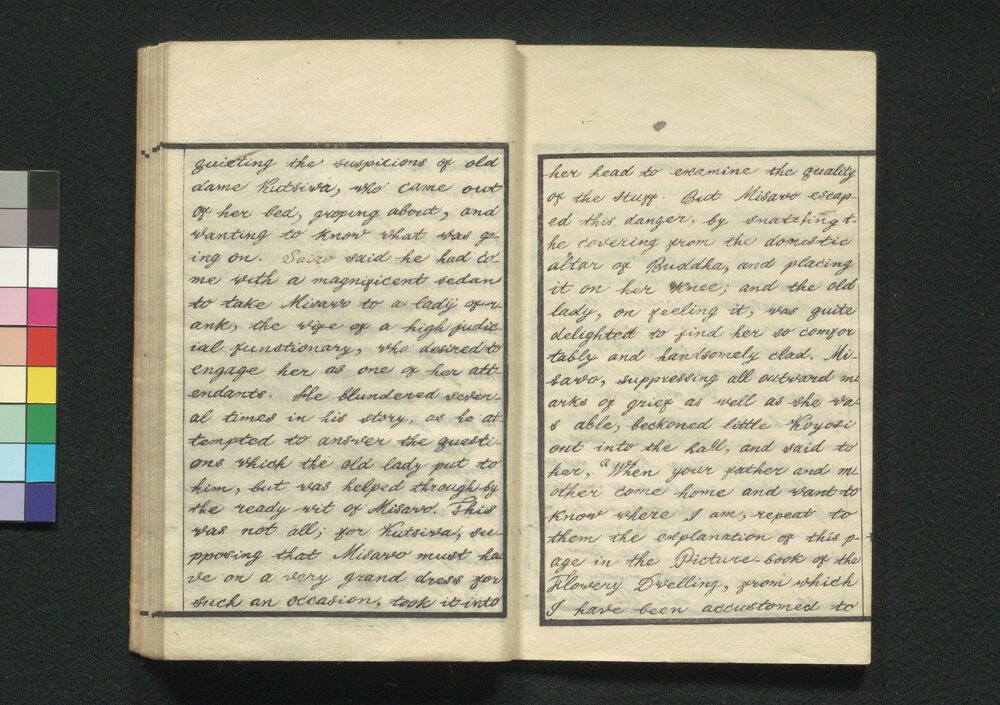 quieting the suspicions of old
dame Kutsiwa, who came out
of her bed, groping about, and
wanting to know what was go-
ing on. Saizo said he had co-
me with a magnificent sedan
to take Misawo to a lady of r-
ank, the wife of a high judic-
ial functionary, who desired to
engage her as one of her att-
endants. He blundered sever-
al times in his story, as he at-
tempted to answer the questi-
ons which the old lady put to
him, but was helped through by
the ready wit of Misawo. This
was not all; for Kutsiwa, su-
pposing that Misawo must ha-
ve on a very grand dress for
such an occasion, took it into
her head to examine the quality
of the stuff. But Misawo escap-
ed this danger, by snatching t-
he covering from the domestic
altar of Buddha, and placing
it on her knee; and the old
lady, on feeling it, was quite
delighted to find her so comfor
tably and handsomely clad. Mi-
sawo, suppressing all outward m
arks of grief as well as she wa-
s able, beckoned little Koyosi
out into the hall, and said to
her, "When your father and m
other come home and want to
know where I am, repeat to
them the explanation of this p-
age in the Picture-book of the
Flowery Dwelling, from which
I have been accustomed to